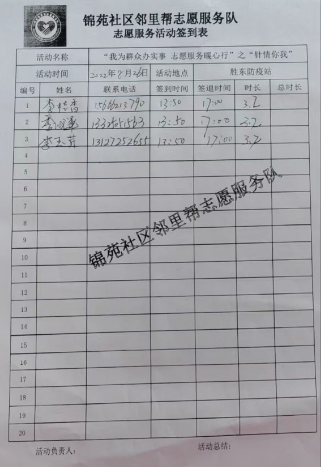 锦苑社区邻里帮志愿服务队
志愿服务活动签到表
活动名称 “我为群众办实事 志愿服务暖心行”之“针情你我”
活动时间 2022年9月26日 活动地点 胜东防疫站
编号 姓名 联系电话 签到时间 签退时间 时长 总时长
1 13:50 17:00 3.2
2 13:50 17:00 3.2
3 13127252655 13:50 17:00 3.2
4
5
6
7
8
9
10
11
12
13
14
15
16
17
18
19
20
锦苑社区邻里帮志愿服务队
活动负责人: 活动总结: